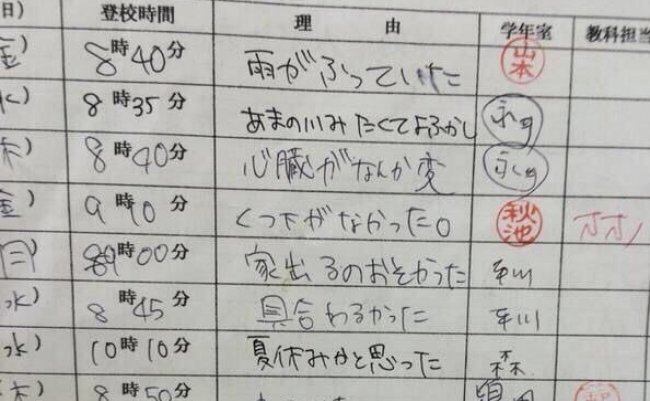 日) 登校時間 理由 学年室 教科担当
金) 8時40分 雨がふっていた 山本
水) 8時35分 あまの川みたくてよふかし
木) 8時40分 心臓がなんか変
金) 9時10分 くつ下がなかった。 秋池
月) 9時00分 家出るのおそかった
水) 8時45分 具合わるかった
水) 10時10分 夏休みかと思った 森
(木) 8時50分